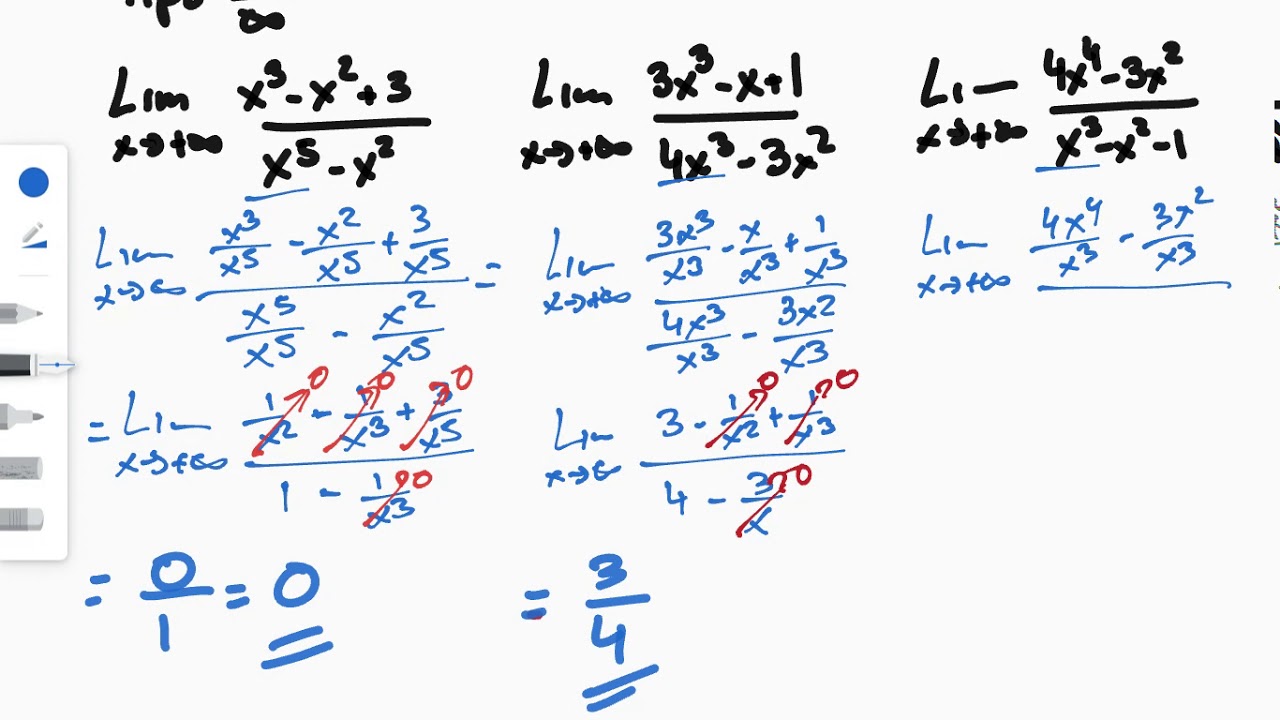 ∞
Lim x→+∞ (x³ - x² + 3)/(x⁵ - x²)
Lim x→∞ (x³/x⁵ - x²/x⁵ + 3/x⁵)/(x⁵/x⁵ - x²/x⁵) =
= Lim x→+∞ (1/x² - 1/x³ + 3/x⁵)/(1 - 1/x³)
0 0 0
0
= 0/1 = 0
Lim x→+∞ (3x³ - x + 1)/(4x³ - 3x²)
Lim x→+∞ (3x³/x³ - x/x³ + 1/x³)/(4x³/x³ - 3x2/x3)
Lim x→∞ (3 - 1/x² + 1/x³)/(4 - 3/x)
0 0
0
= 3/4
Lim x→+∞ (4x⁴ - 3x²)/(x³ - x² - 1)
Lim x→+∞ 4x⁴/x³ - 3x²/x3